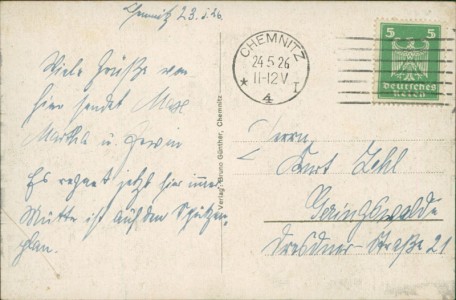 Chemnitz 23.5.26.
Viele Grüße von
hier sendet
Martha u. Erwin
Es regnet jetzt hier immer
Mutter ist auf den Spitzen-
plan.
Verlag: Bruno Günther, Chemnitz
CHEMNITZ
24.5.26
11-12V
* 4 I
5 5
Deutsches
Reich
Herrn
Kurt
Geringswalde
Dresdner-Straße 21